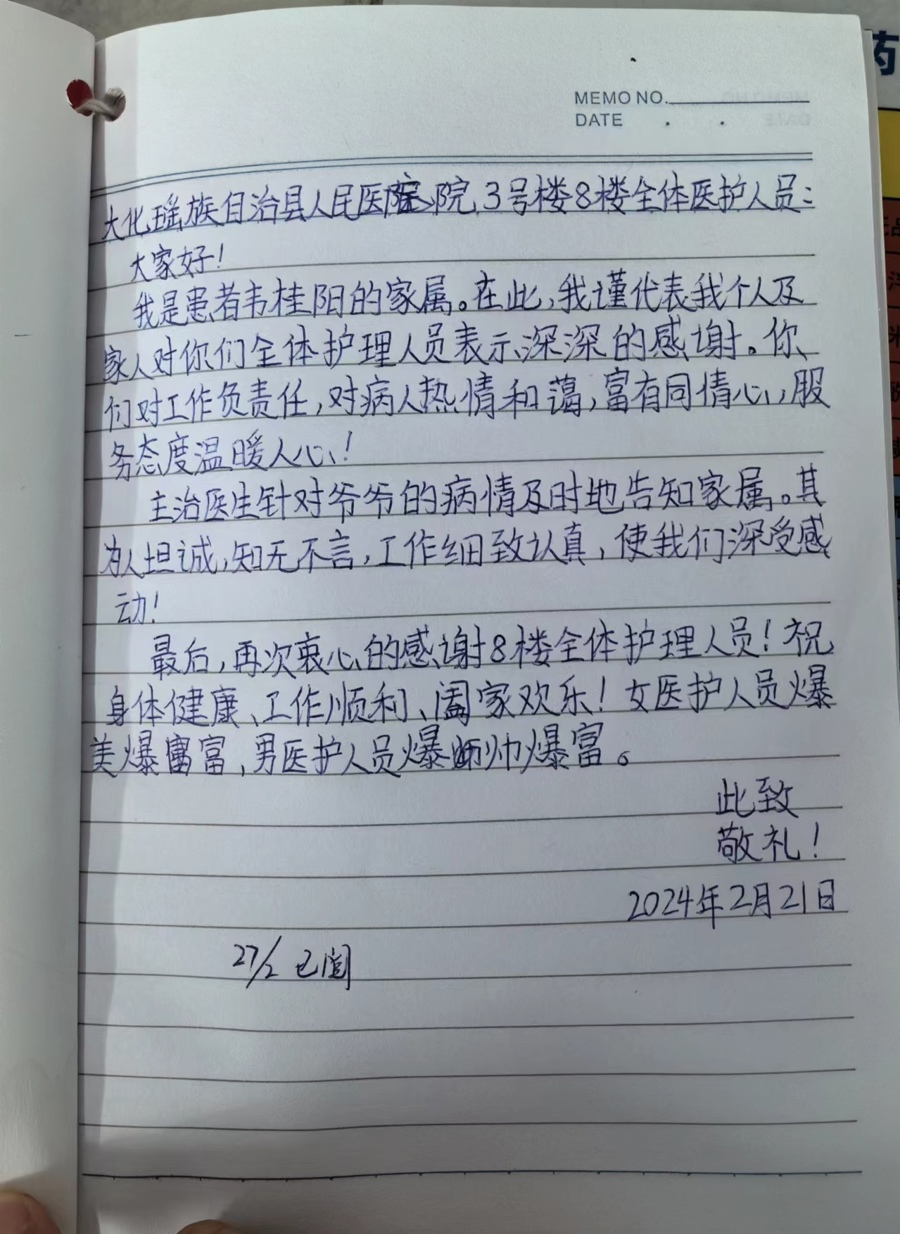 MEMO NO.
DATE
大化瑶族自治县人民医院3号楼8楼全体医护人员：
大家好！
我是患者韦桂阳的家属。在此，我谨代表我个人及
家人对你们全体护理人员表示深深的感谢。你
们对工作负责任，对病人热情和蔼，富有同情心，服
务态度温暖人心！
主治医生针对爷爷的病情及时地告知家属。其
为人坦诚，知无不言，工作细致认真，使我们深受感
动！
最后，再次衷心的感谢8楼全体护理人员！祝
身体健康、工作顺利、阖家欢乐！女医护人员爆
美爆富，男医护人员爆帅爆富。
此致
敬礼！
2024年2月21日
27/2 已阅
药